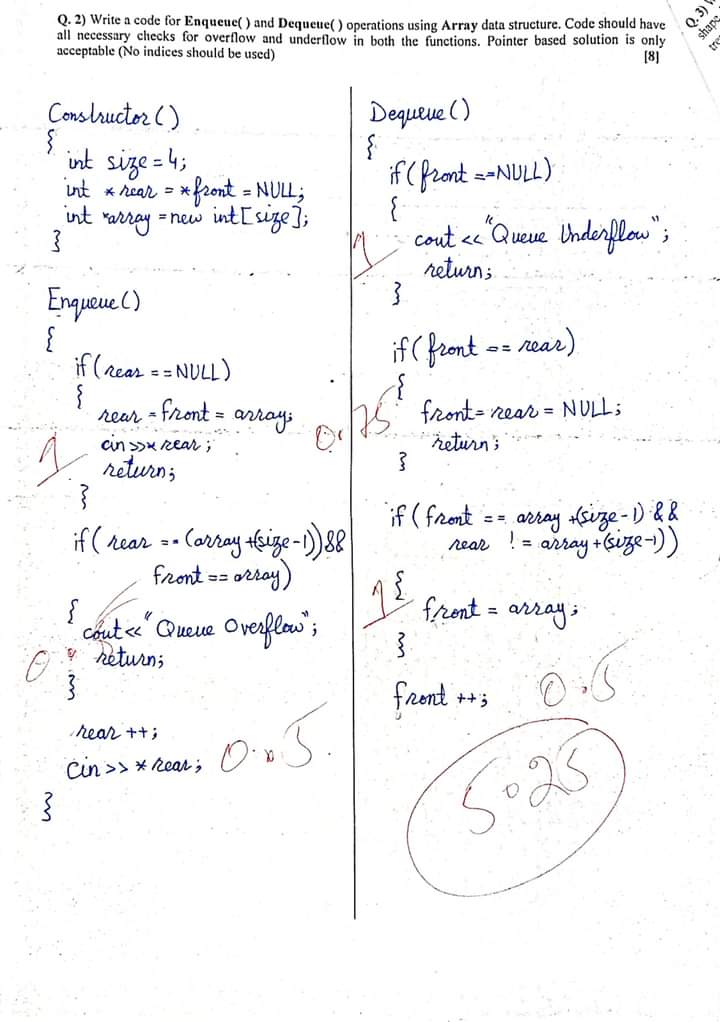 Q. 2) Write a code for Enqueue( ) and Dequeue( ) operations using Array data structure. Code should have
all necessary checks for overflow and underflow in both the functions. Pointer based solution is only
acceptable (No indices should be used) [8]
Q. 3)
shape
Constructor()
{
int size = 4;
int *rear = *front = NULL;
int *array = new int[size];
}
Enqueue()
{
if(rear == NULL)
{
rear = front = array;
cin >>* rear;
return;
1
}
if(rear == (array+(size-1))&&
front == array)
{
cout<<"Queue Overflow";
return;
0
}
rear ++;
cin >> * rear;
0.5
}
Dequeue()
{
if(front ==NULL)
{
cout << "Queue Underflow";
return;
1
}
if(front == rear)
{
front= rear = NULL;
return;
0.75
}
if(front == array+(size-1) &&
rear != array+(size-1))
{
1
front = array;
}
front ++;
0.5
5.25